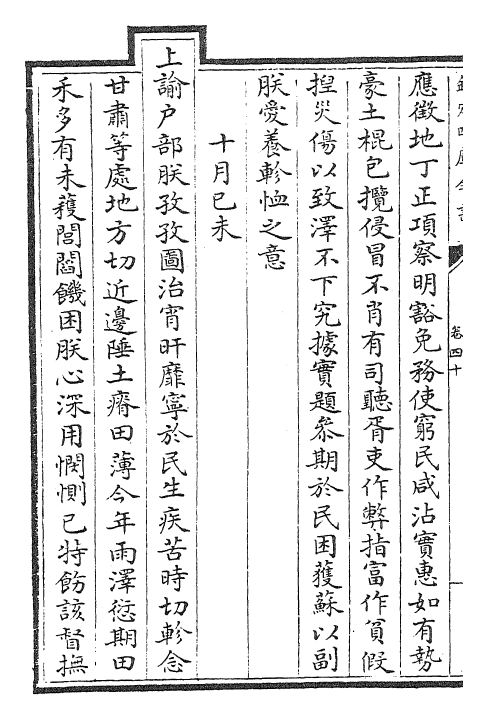 欽定四庫全書
卷四十
應徵地丁正項察明豁免務使窮民咸沾實惠如有勢
豪土棍包攬侵冒不肖有司聽胥吏作弊指富作貧假
捏災傷以致澤不下究據實題參期於民困獲蘇以副
朕愛養軫恤之意
十月己未
上諭户部朕孜孜圖治宵旰靡寧於民生疾苦時切軫念
甘肅等處地方切近邊陲土瘠田薄今年雨澤愆期田
禾多有未穫閭閻饑困朕心深用憫惻已特飭該督撫